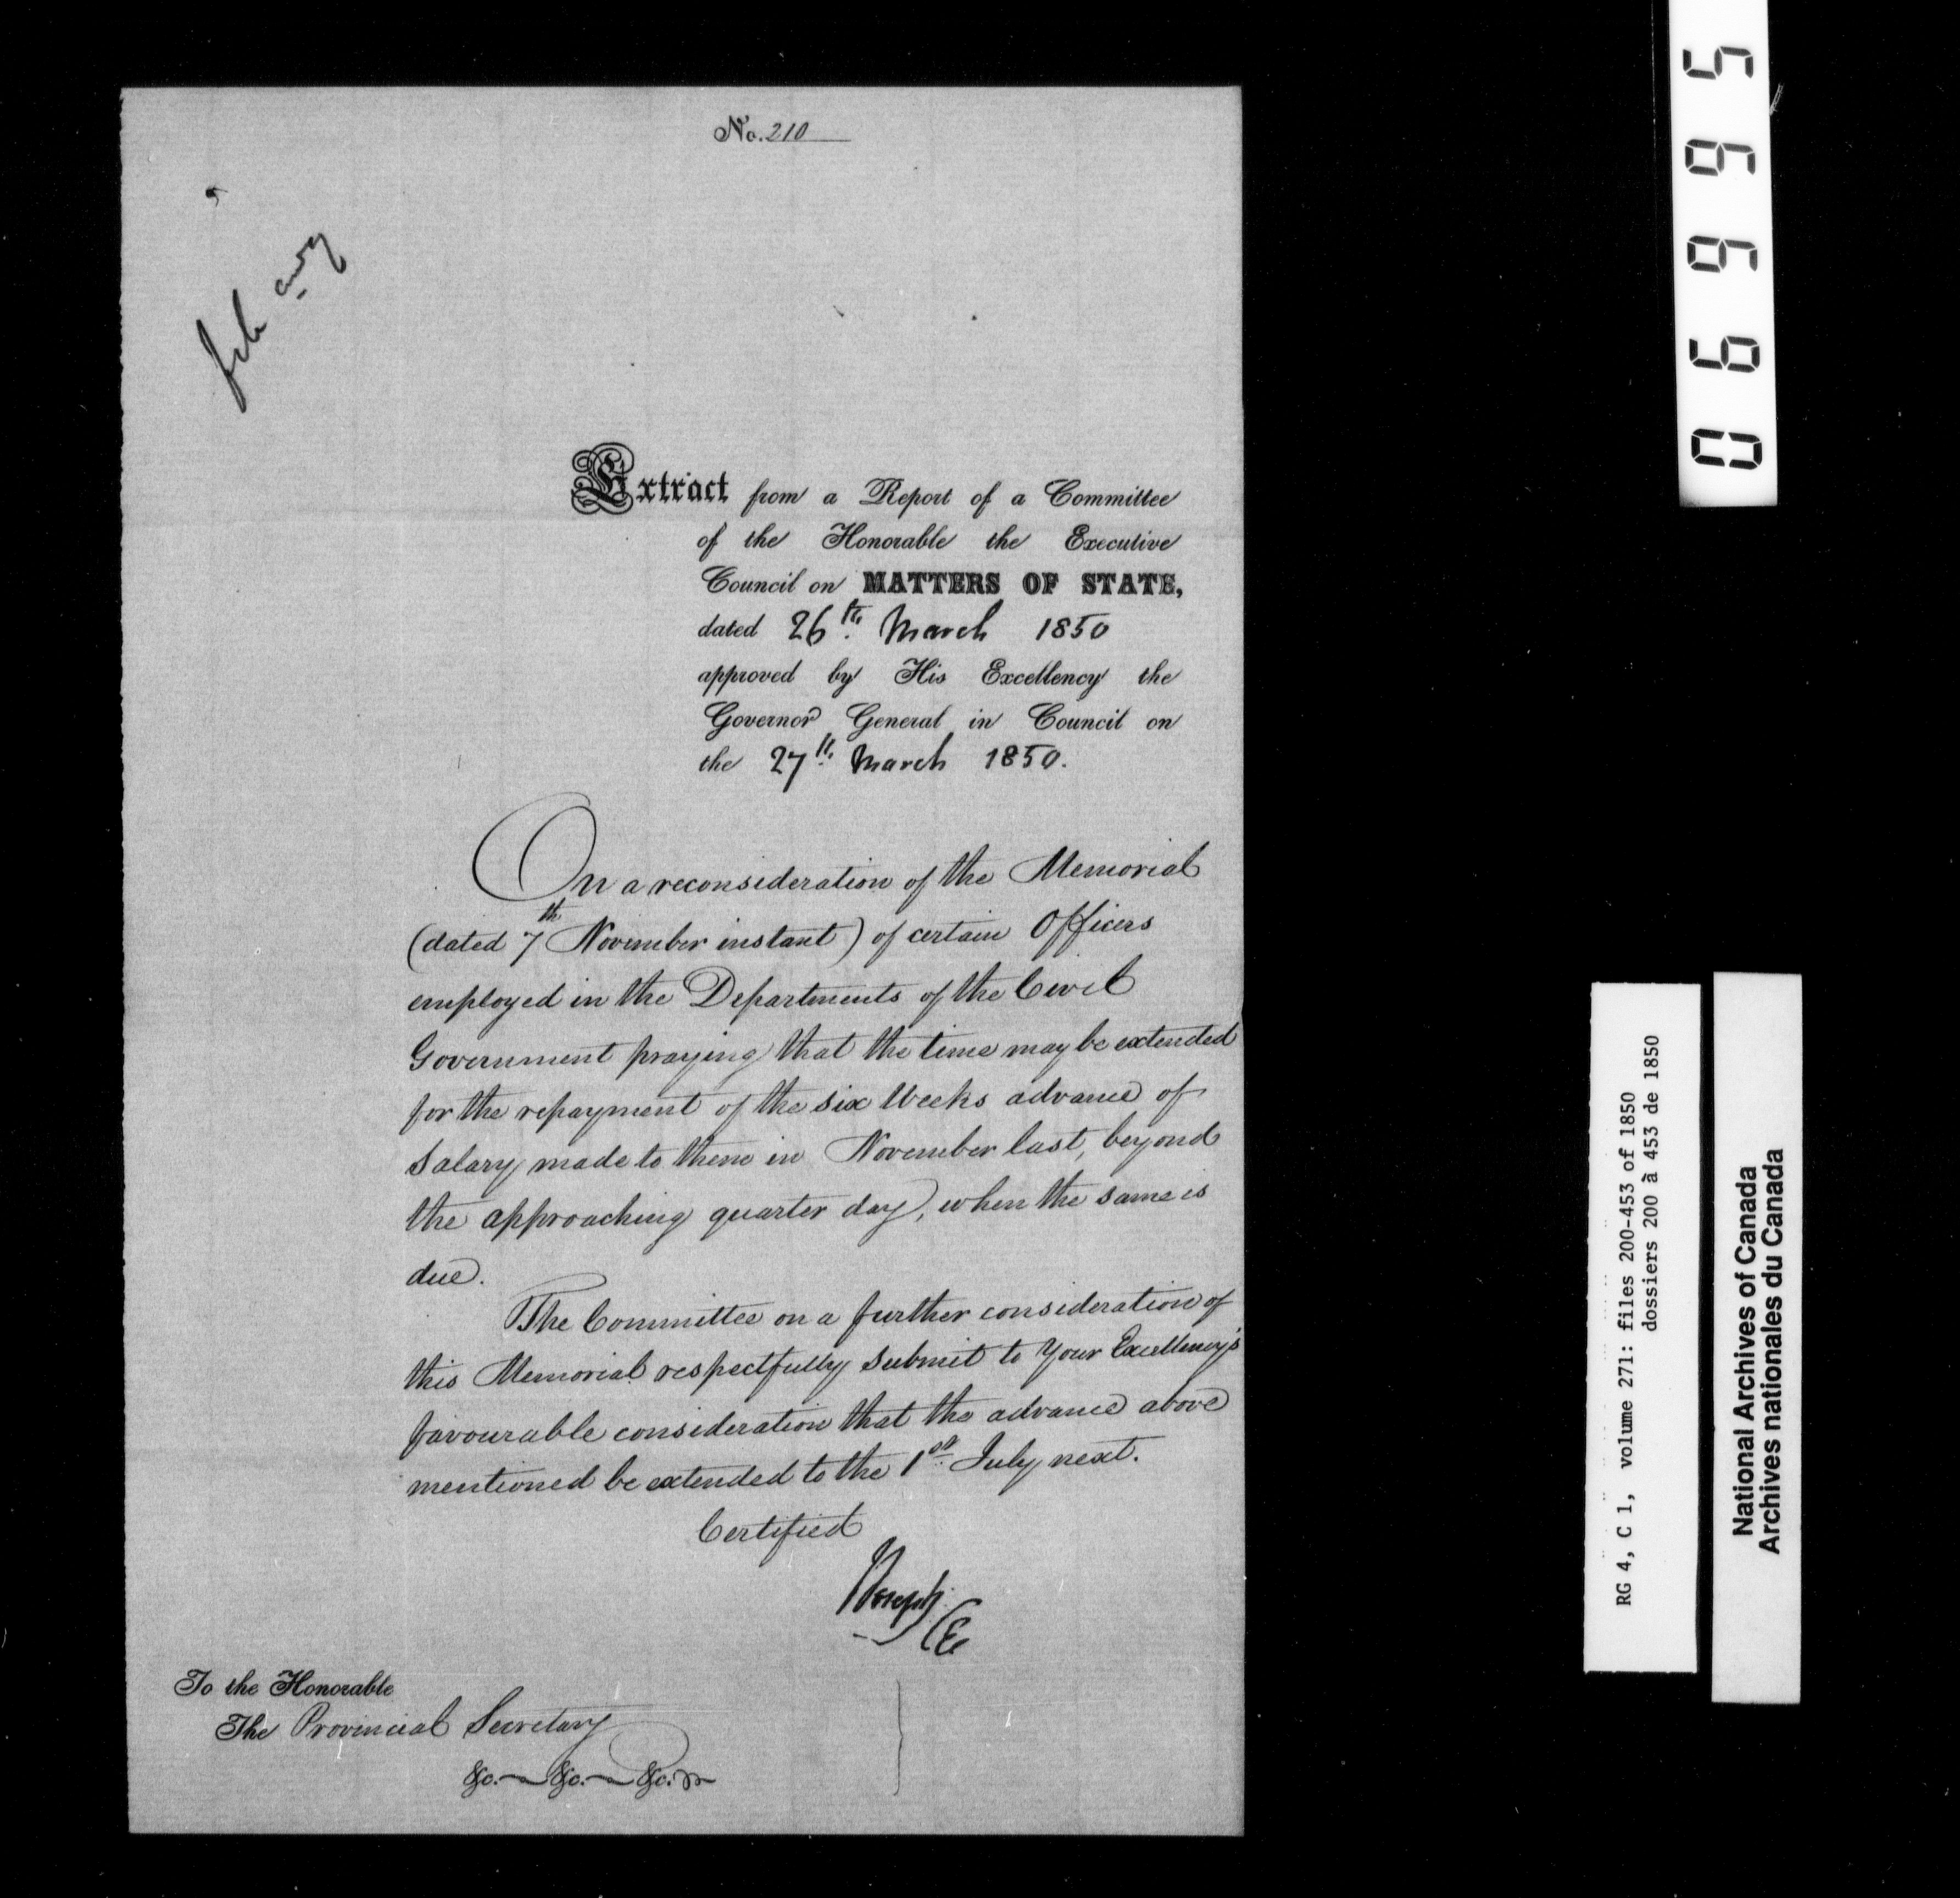 No. 210
Extract from a Report of a Committee
of the Honorable the Executive
Council on MATTERS OF STATE,
dated 26th March 1850
approved by His Excellency the
Governor General in Council on
the 27th March 1850.
On a reconsideration of the Memorial
(dated 7th November instant) of certain Officers
employed in the Departments of the Civil
Government praying that the time may be extended
for the repayment of the six Weeks advance of
Salary made to them in November last, beyond
the approaching quarter day, when the same is
due.
The Committee on a further consideration of
this Memorial respectfully submit to Your Excellency's
favourable consideration that the advance above
mentioned be extended to the 1st July next.
Certified
To the Honorable
The Provincial Secretary
&c. &c. &c.
06995
RG 4, C 1, volume 271: files 200-453 of 1850
dossiers 200 à 453 de 1850
National Archives of Canada
Archives nationales du Canada